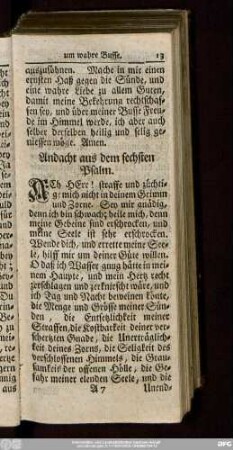 um wahre Busse. 13
auszusöhnen. Mache in mir einen
ernsten Haß gegen die Sünde, und
eine wahre Liebe zu allem Guten,
damit meine Bekehrung rechtschaf-
fen sey, und über meiner Busse Freu-
de im Himmel werde, ich aber auch
selber derselben heilig und selig ge-
niessen möge. Amen.
Andacht aus dem sechsten
Psalm.
ACh HErr! straffe und züchti-
ge mich nicht in deinem Grimm
und Zorne. Sey mir gnädig,
denn ich bin schwach; heile mich, denn
meine Gebeine sind erschrocken, und
meine Seele ist sehr erschrocken.
Wende dich, und errette meine See-
le, hilff mir um deiner Güte willen.
O daß ich Wasser gnug hätte in mei-
nem Haupte, und mein Hertz recht
zerschlagen und zerknirscht wäre, und
ich Tag und Nacht beweinen könte,
die Menge und Grösse meiner Sün-
den, die Entsetzlichkeit meiner
Straffen, die Kostbarkeit deiner ver-
schertzten Gnade, die Unerträglich-
keit deines Zorns, die Seligkeit des
verschlossenen Himmels, die Grau-
samkeit der offenen Hölle, die Ge-
fahr meiner elenden Seele, und die
A 7 Unend-